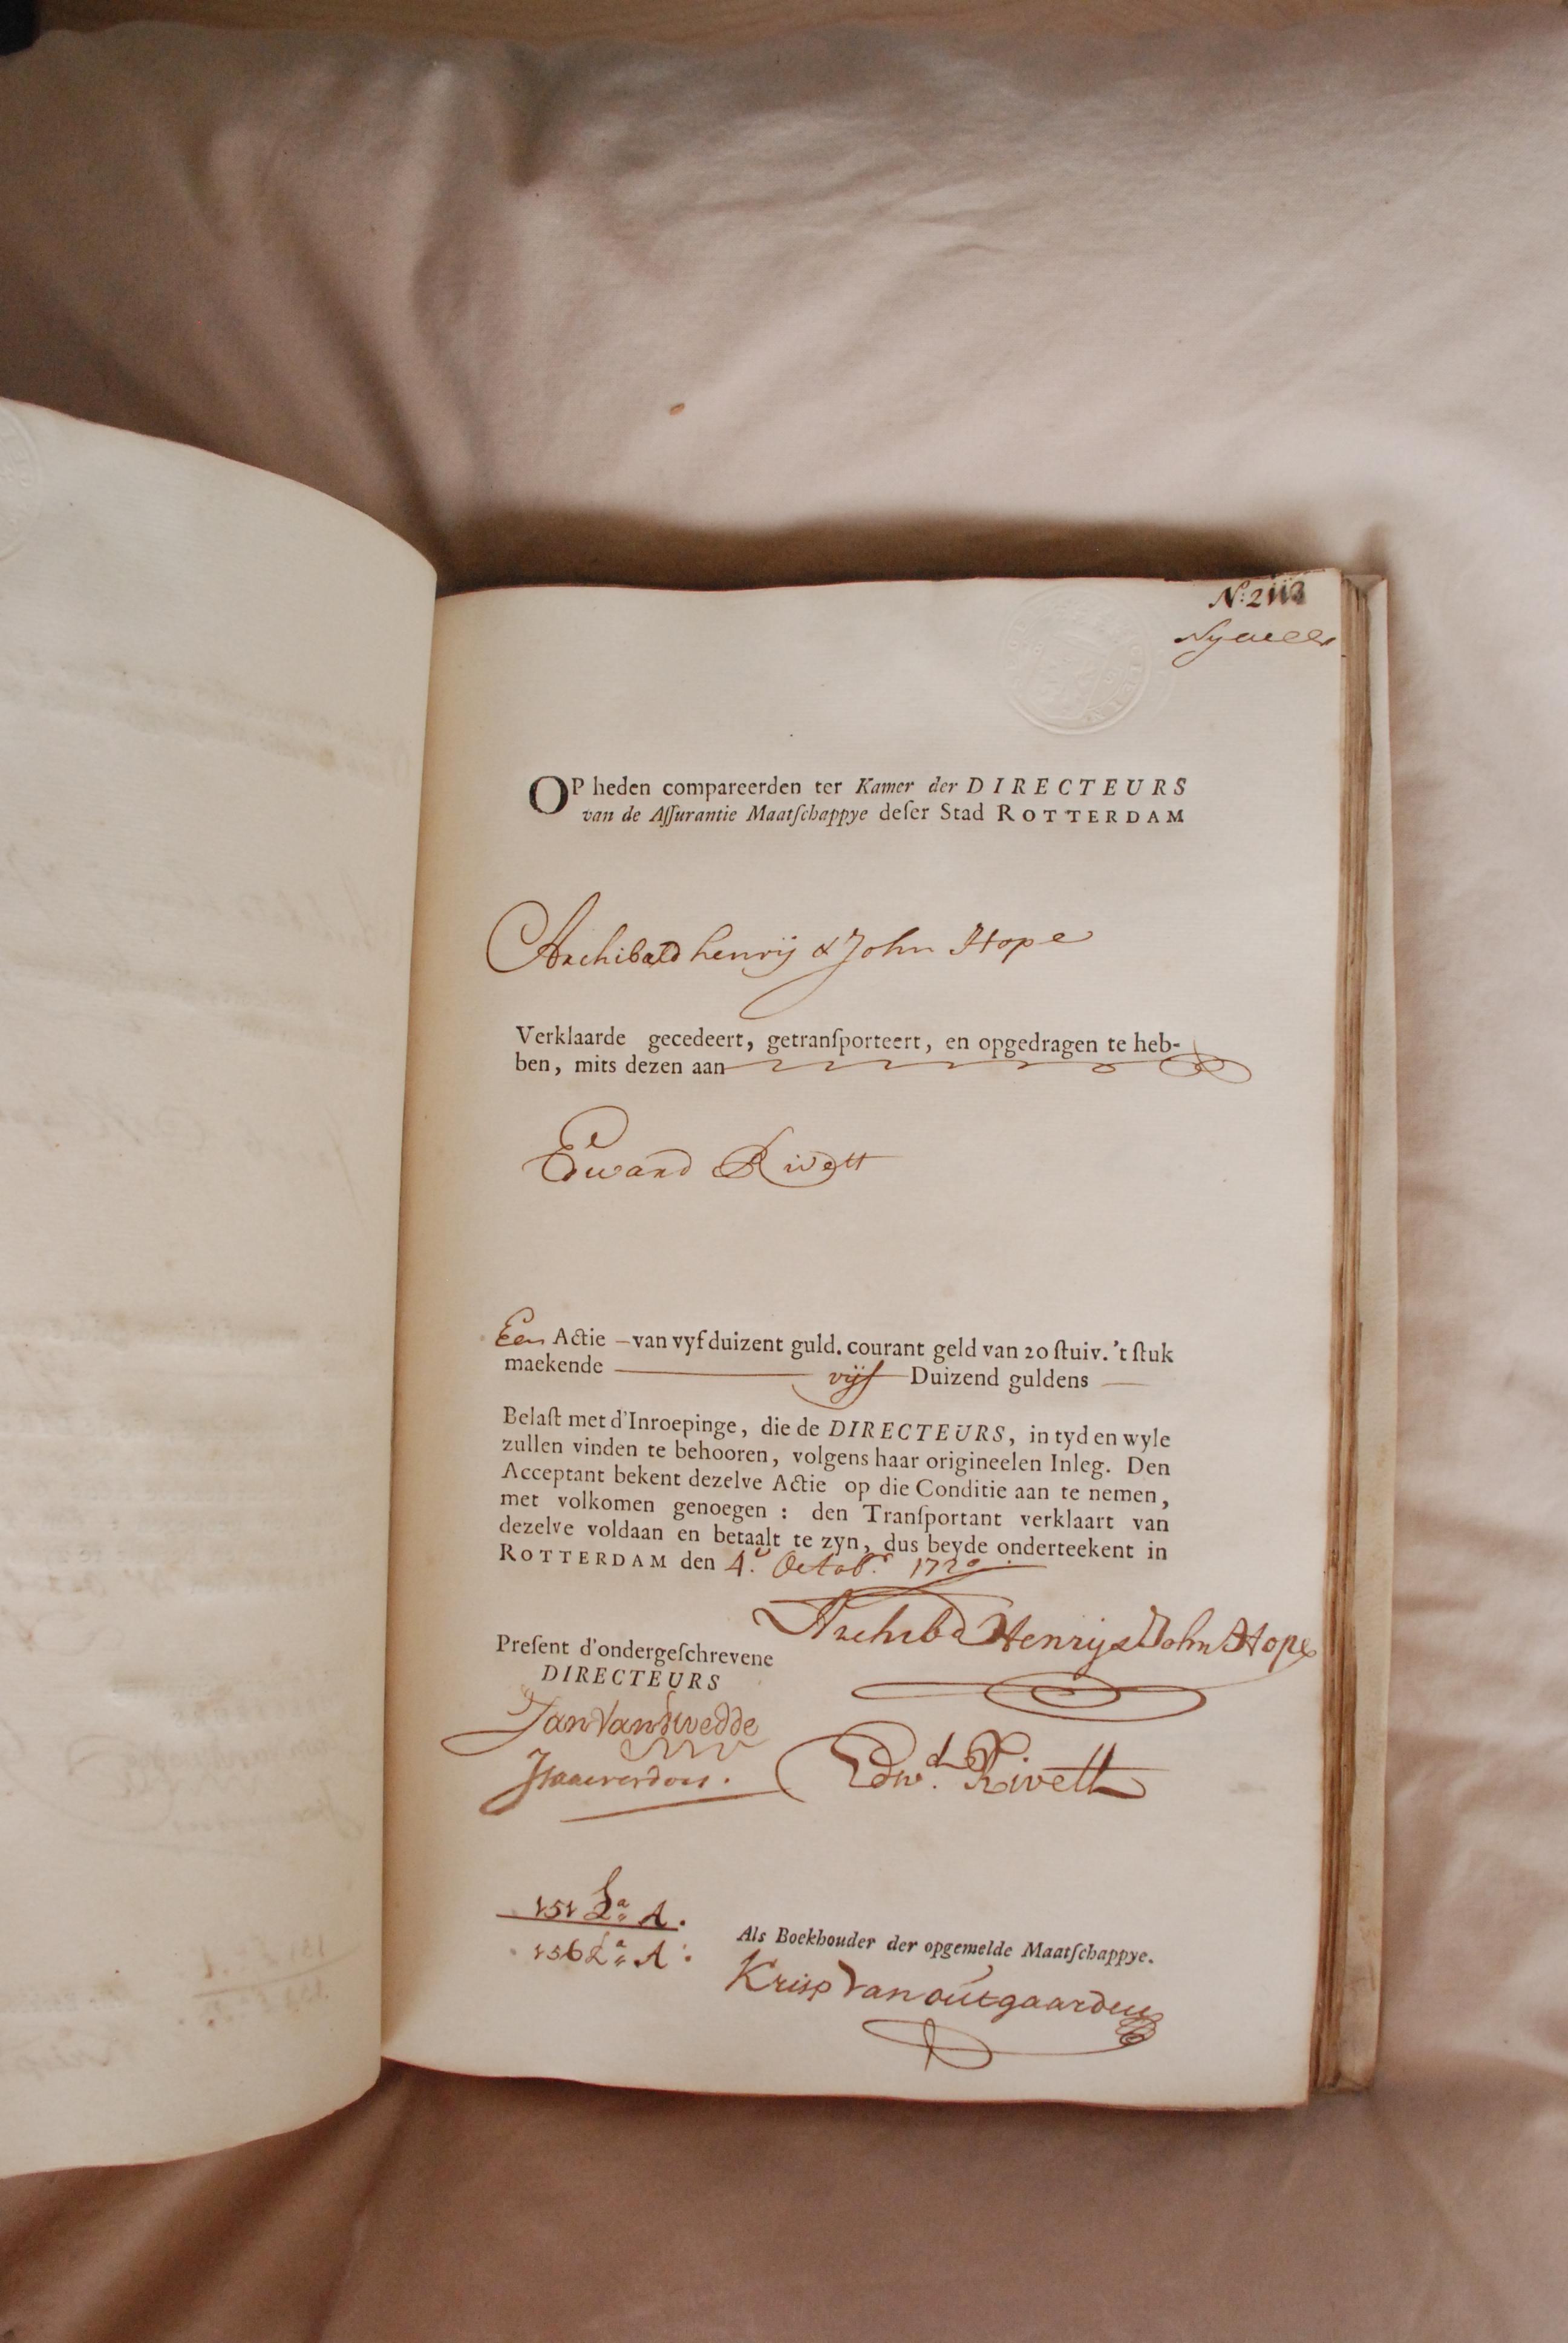 OP heden compareerden ter Kamer der DIRECTEURS
van de Aſſurantie Maatſchappye deſer Stad ROTTERDAM
Archibald henrij & John Hope
Verklaarde gecedeert, getranſporteert, en opgedragen te heb-
ben, mits dezen aan
Edward Rivett
Een Actie – van vyf duizent guld. courant geld van 20 ſtuiv. 't ſtuk
maekende vijf Duizend guldens
Belaſt met d'Inroepinge, die de DIRECTEURS, in tyd en wyle
zullen vinden te behooren, volgens haar origineelen Inleg. Den
Acceptant bekent dezelve Actie op die Conditie aan te nemen,
met volkomen genoegen: den Tranſportant verklaart van
dezelve voldaan en betaalt te zyn, dus beyde onderteekent in
ROTTERDAM den 4.e Octob.r 1720.
Archibd Henrij & John Hope
Preſent d'ondergeſchrevene
DIRECTEURS
Edwd. Rivett
151 La A.
156 La A:
Als Boekhouder der opgemelde Maatſchappye.
Krisp Van outgaarden